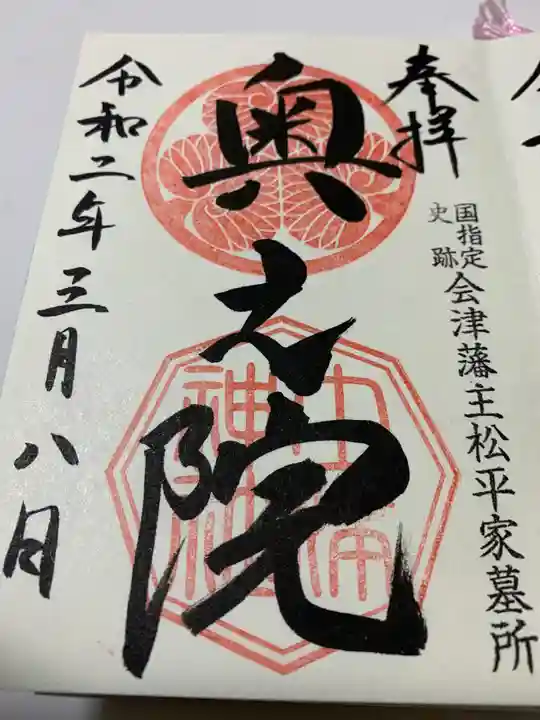 奉拝
国指定
史跡
会津藩主松平家墓所
奥之院
神社
令和二年三月八日